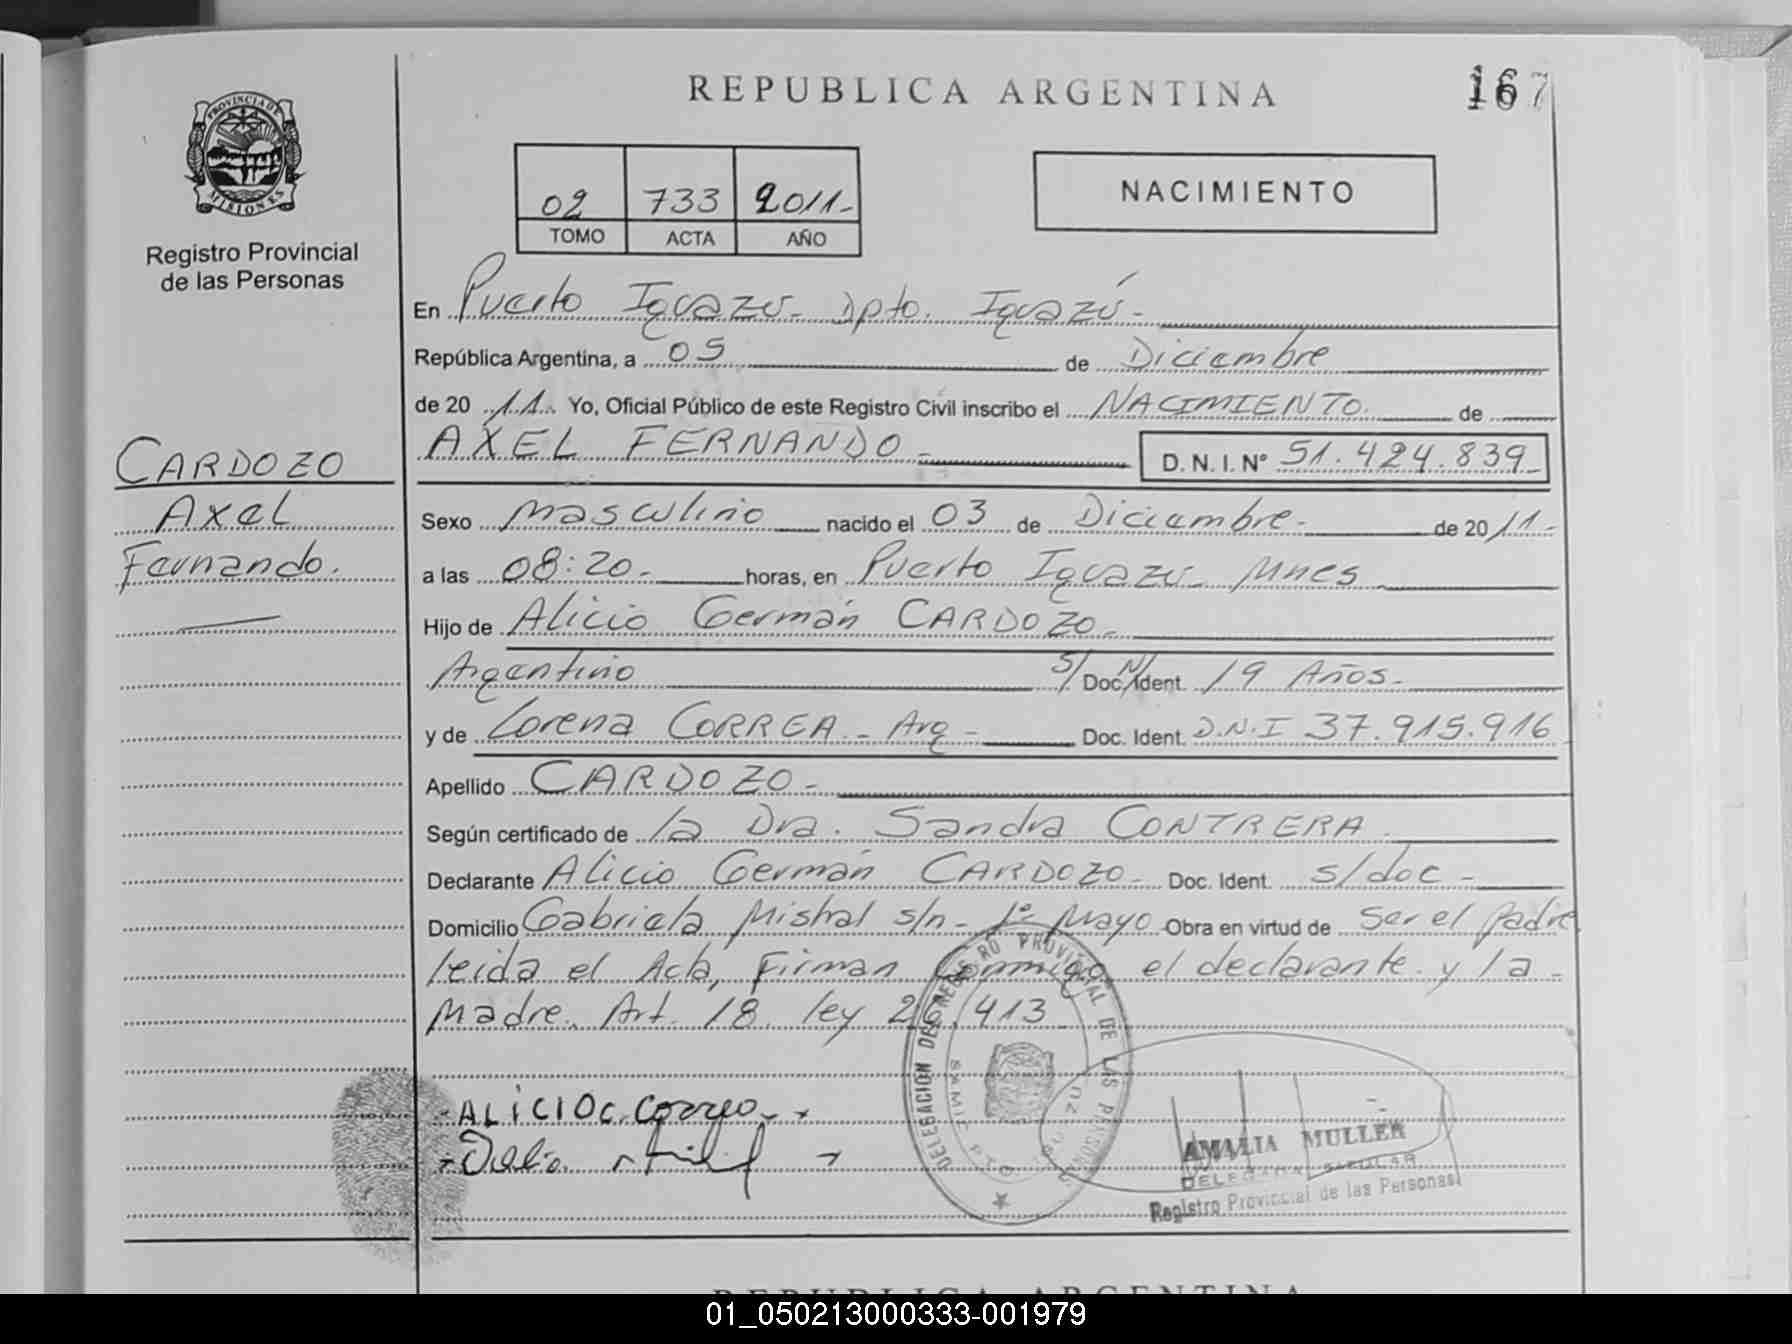 REPUBLICA ARGENTINA
167
PROVINCIA DE MISIONES
Registro Provincial
de las Personas
02 733 2011-
TOMO ACTA AÑO
NACIMIENTO
En Puerto Iguazú- Dpto. Iguazú-
República Argentina, a 05 de Diciembre
de 20 11 Yo, Oficial Público de este Registro Civil inscribo el NACIMIENTO de
AXEL FERNANDO - D. N. I. Nº 51.424.839-
CARDOZO
Axel
Fernando.
Sexo Masculino nacido el 03 de Diciembre- de 20 11-
a las 08:20- horas, en Puerto Iguazú- Mnes
Hijo de Alicio Germán CARDOZO-
Argentino S/ N/ Doc. Ident. 19 Años-
y de Lorena CORREA - Arg - Doc. Ident. D.N.I 37.915.916
Apellido CARDOZO-
Según certificado de la Dra. Sandra CONTRERA
Declarante Alicio Germán CARDOZO- Doc. Ident. s/doc -
Domicilio Gabriela Mistral s/n - 1º Mayo Obra en virtud de Ser el padre
leida el Acta, Firman conmigo el declarante y la
Madre. Art. 18 ley 26.413
ALICIO C.
DELEGACION DEL REGISTRO PROVINCIAL DE LAS PERSONAS
AMALIA MULLER
DELEGADA TITULAR
Registro Provincial de las Personas
REPUBLICA ARGENTINA
01_050213000333-001979